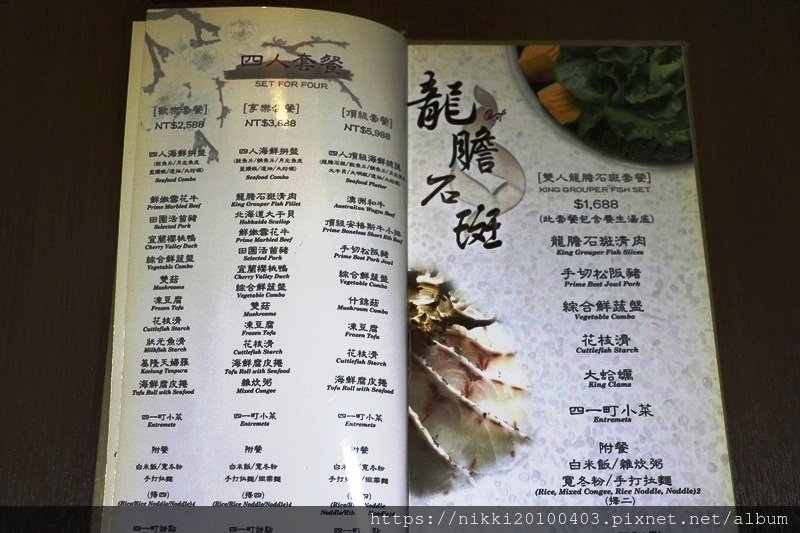 四人套餐
SET FOR FOUR
[歡樂套餐]
NT$2,588
四人海鮮拼盤
Seafood Combo
鮮嫩雪花牛
Prime Marbled Beef
田園活菌豬
Selected Pork
宜蘭櫻桃鴨
Cherry Valley Duck
綜合鮮蔬盤
Vegetable Combo
雙菇
Mushrooms
凍豆腐
Frozen Tofu
花枝滑
Cuttlefish Starch
狀元魚滑
Milkfish Starch
基隆天婦羅
Keelung Tenpura
海鮮腐皮捲
Tofu Roll with Seafood
四一町小菜
Entremets
附餐
白米飯/寬冬粉
手打拉麵/雜炊粥
(擇四)
(Rice/Rice Noddle/Noddle)4
四一町甜點
[享樂套餐]
NT$3,888
四人海鮮拼盤
Seafood Combo
龍膽石斑清肉
King Grouper Fish Fillet
北海道大干貝
Hokkaido Scallop
鮮嫩雪花牛
Prime Marbled Beef
田園活菌豬
Selected Pork
宜蘭櫻桃鴨
Cherry Valley Duck
綜合鮮蔬盤
Vegetable Combo
雙菇
Mushrooms
凍豆腐
Frozen Tofu
花枝滑
Cuttlefish Starch
海鮮腐皮捲
Tofu Roll with Seafood
雜炊粥
Mixed Congee
四一町小菜
Entremets
附餐
白米飯/寬冬粉
(擇四)
(Rice/Rice Noddle/Noddle)4
四一町甜點
[頂級套餐]
NT$5,988
Seafood Platter
澳洲和牛
Australian Wagyu Beef
頂級安格斯牛小排
Prime Boneless Short Rib Beef
手切松阪豬
Prime Best Pork Jowl
綜合鮮蔬盤
Vegetable Combo
什錦菇
Mushroom Combo
凍豆腐
Frozen Tofu
花枝滑
Cuttlefish Starch
海鮮腐皮捲
Tofu Roll with Seafood
四一町小菜
Entremets
附餐
白米飯/寬冬粉
(擇四)
龍膽石斑
[雙人龍膽石斑套餐]
KING GROUPER FISH SET
$1,688
(此套餐包含養生湯底)
龍膽石斑清肉
King Grouper Fish Slices
手切松阪豬
Prime Best Jowl Pork
綜合鮮蔬盤
Vegetable Combo
花枝滑
Cuttlefish Starch
大蛤蠣
King Clams
四一町小菜
Entremets
附餐
白米飯/雜炊粥
寬冬粉/手打拉麵
(Rice, Mixed Congee, Rice Noddle, Noddle)2
(擇二)
https://nikki20100403.pixnet.net/album